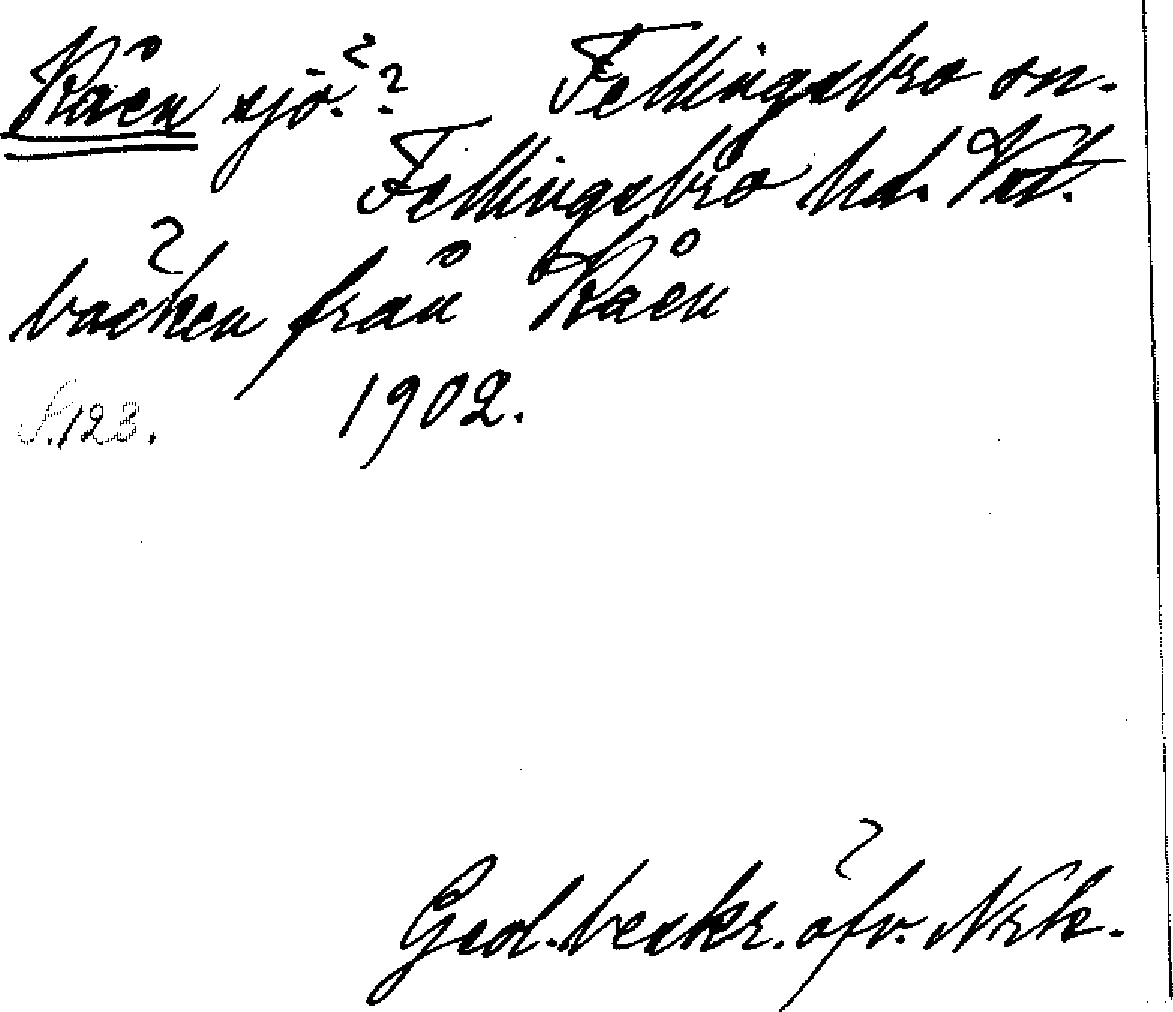 Råen sjö.? Fellingsbro sn.
Fellingsbro hd. Vstm.
bäcken från Råen
S.123. 1902.
Geol. beskr. öfv. Nrk.